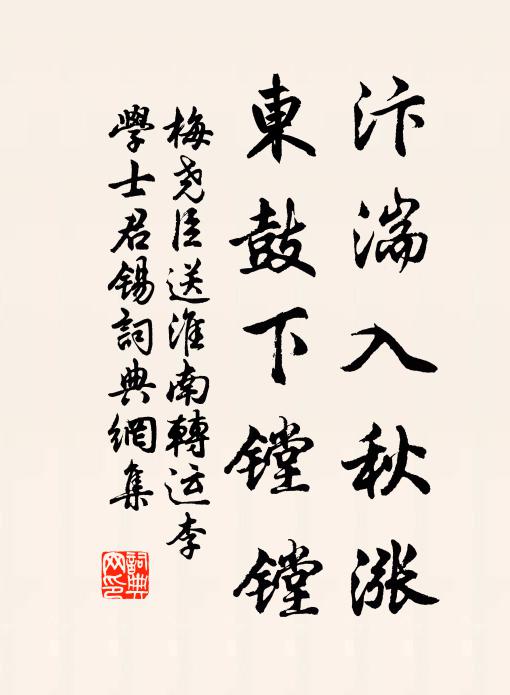 汴湍入秋漲
東鼓下鏜鏜
梅堯臣送淮南轉运李
學士君锡詞典網集
詞典
网印